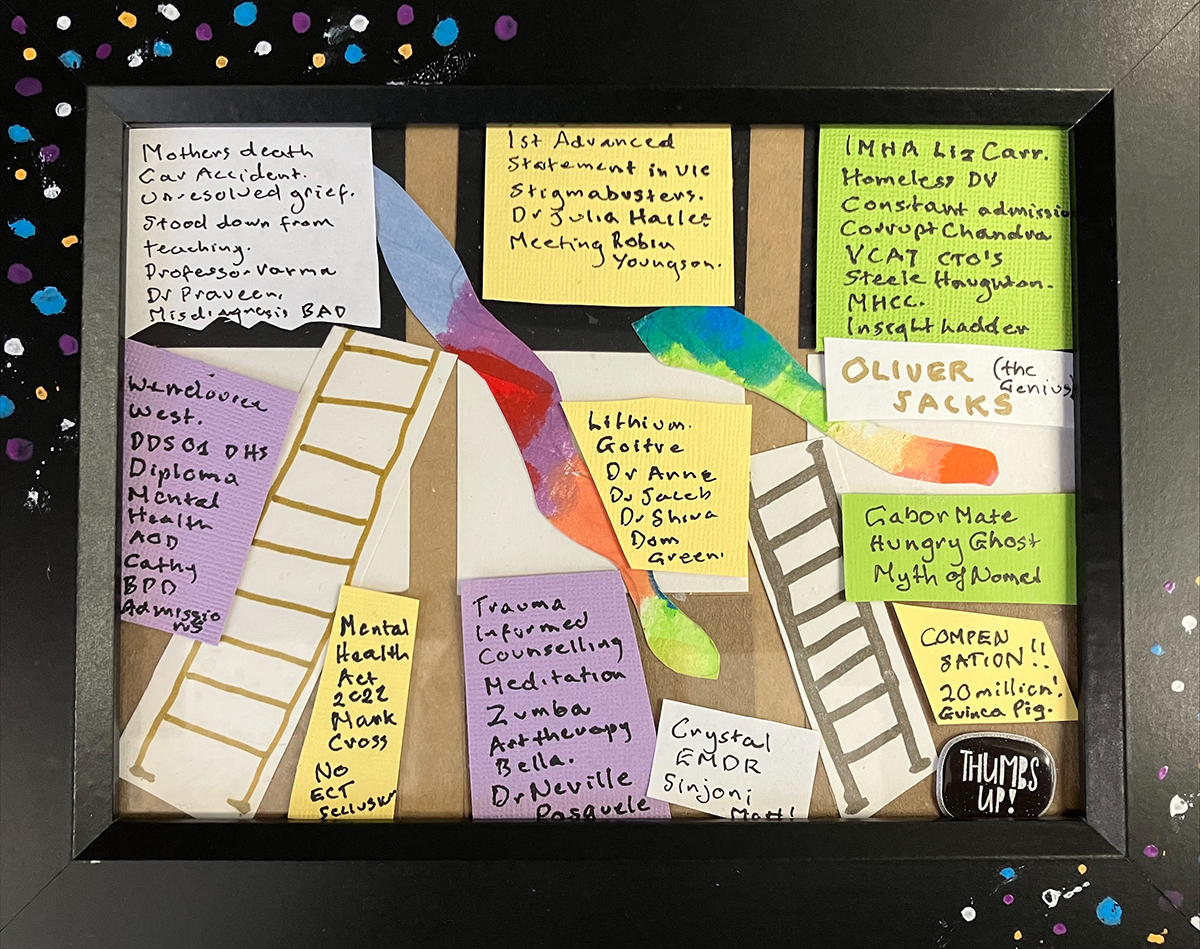 Mothers death
Car Accident.
Unresolved grief.
Stood down from
teaching.
Professor Varma
Dr Praveen.
Misdiagnosis BAD
1st Advanced
Statement in VIC
Stigmabusters.
Dr Julia Hailes
Meeting Robin
Youngson.
IMHA Liz Carr.
Homeless DV
Constant admissio
Corrupt Chandra
VCAT CTO's
Steele Haughton.
MHCC.
Insight Ladder
OLIVER (the
Genius)
SACKS
West.
DDSO1 DHS
Diploma
Mental
Health
AOD
Cathy
BPD
Admissio
ns
Lithium.
Goitre
Dr Anne
Dr Jacob
Dr Shiva
Dom
Green.
Gabor Mate
Hungry Ghost
Myth of Nomal
Mental
Health
Act
2022
Mark
Cross
No
ECT
Seclusion
Trauma
Informed
Counselling
Meditation
Zumba
Art therapy
Bella.
Dr Neville
Pasquele
Crystal
EMDR
Sinjoni
Matt!
COMPEN
SATION!!
20 million!
Guinea Pig.
THUMBS
UP!